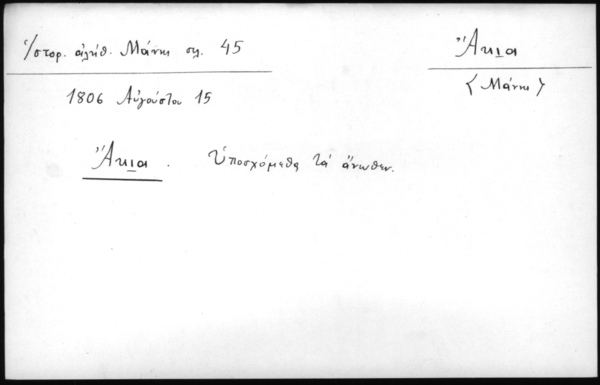 Ἱστορ. ἀληθ. Μάνης σελ. 45
Ἄκια
〈Μάνη〉
1806 Αὐγούστου 15
Ἄκια. Ὑποσχόμεθα τὰ ἄνωθεν.